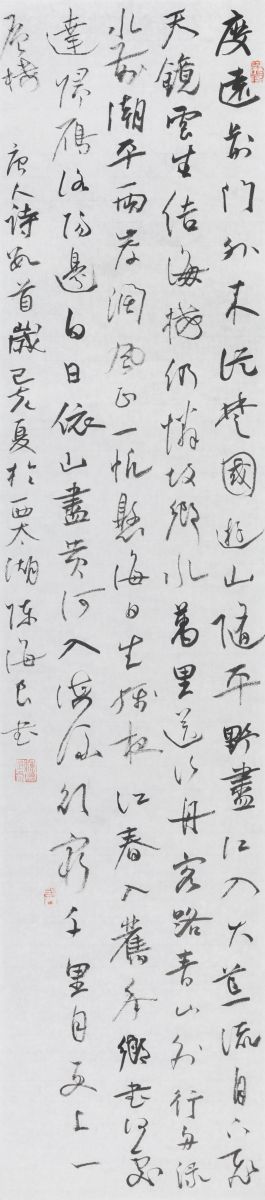 度遠荆門外來從楚國遊山隨平野盡江入大荒流月下飛
天鏡雲生結海樓仍憐故鄉水萬里送行舟客路青山外行舟綠
水前潮平兩岸闊風正一帆懸海日生殘夜江春入舊年鄉書何處
達歸雁洛陽邊白日依山盡黃河入海流欲窮千里目更上一
層樓 唐人詩數首歲己亥夏於西太湖陳海良書